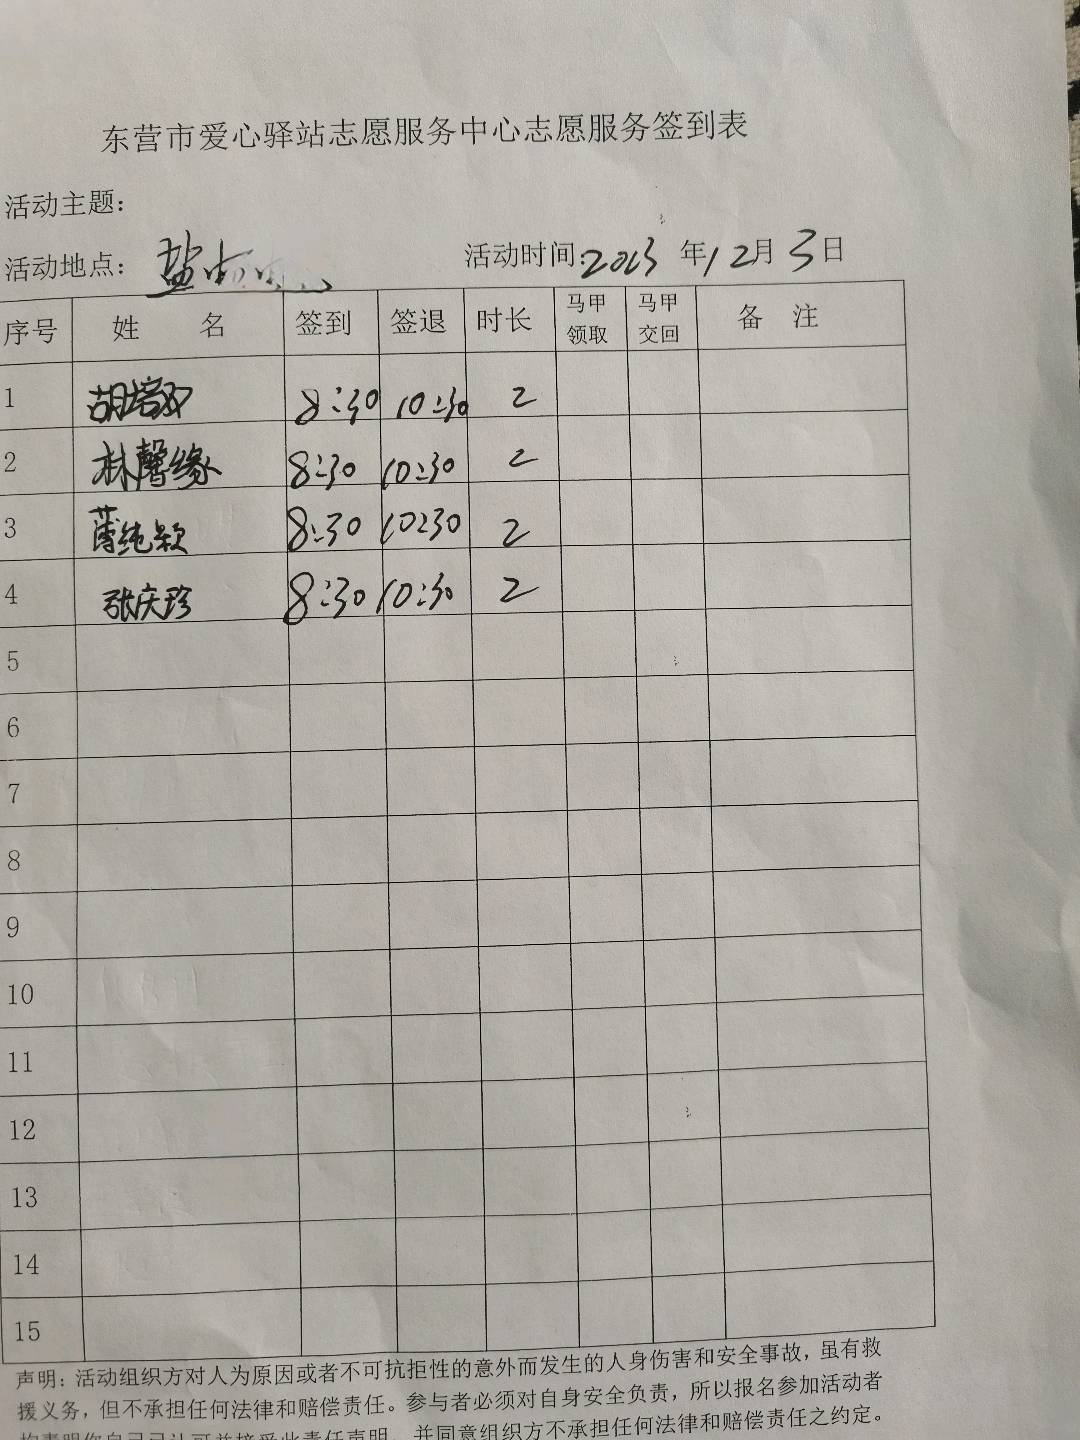 东营市爱心驿站志愿服务中心志愿服务签到表
活动主题：
活动地点：盐 活动时间：2023年12月3日
序号 姓 名 签到 签退 时长 马甲领取 马甲交回 备 注
1 胡培 8:30 10:30 2
2 林馨缘 8:30 10:30 2
3 薄纯颖 8:30 10:30 2
4 张庆珍 8:30 10:30 2
5
6
7
8
9
10
11
12
13
14
15
声明：活动组织方对人为原因或者不可抗拒性的意外而发生的人身伤害和安全事故，虽有救
援义务，但不承担任何法律和赔偿责任。参与者必须对自身安全负责，所以报名参加活动者
均表明你自己已认可并接受此责任声明，并同意组织方不承担任何法律和赔偿责任之约定。